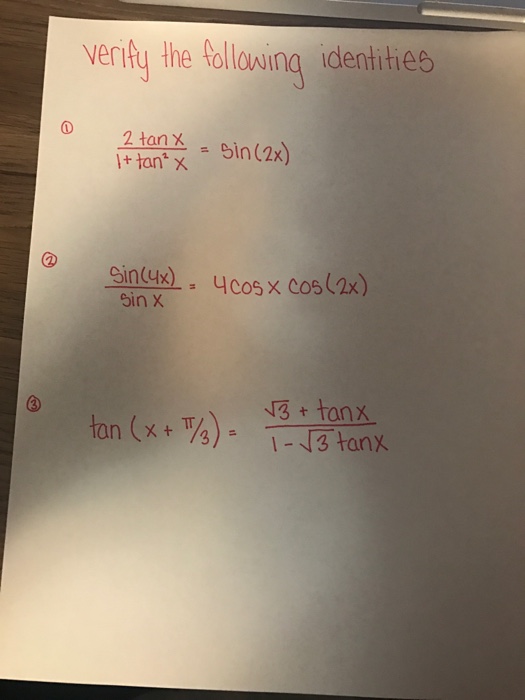 verify the following identities
① 2 tan x / 1 + tan² x = sin(2x)
② sin(4x) / sin x = 4cos x cos(2x)
③ tan (x + π/3) = √3 + tanx / 1 - √3 tanx